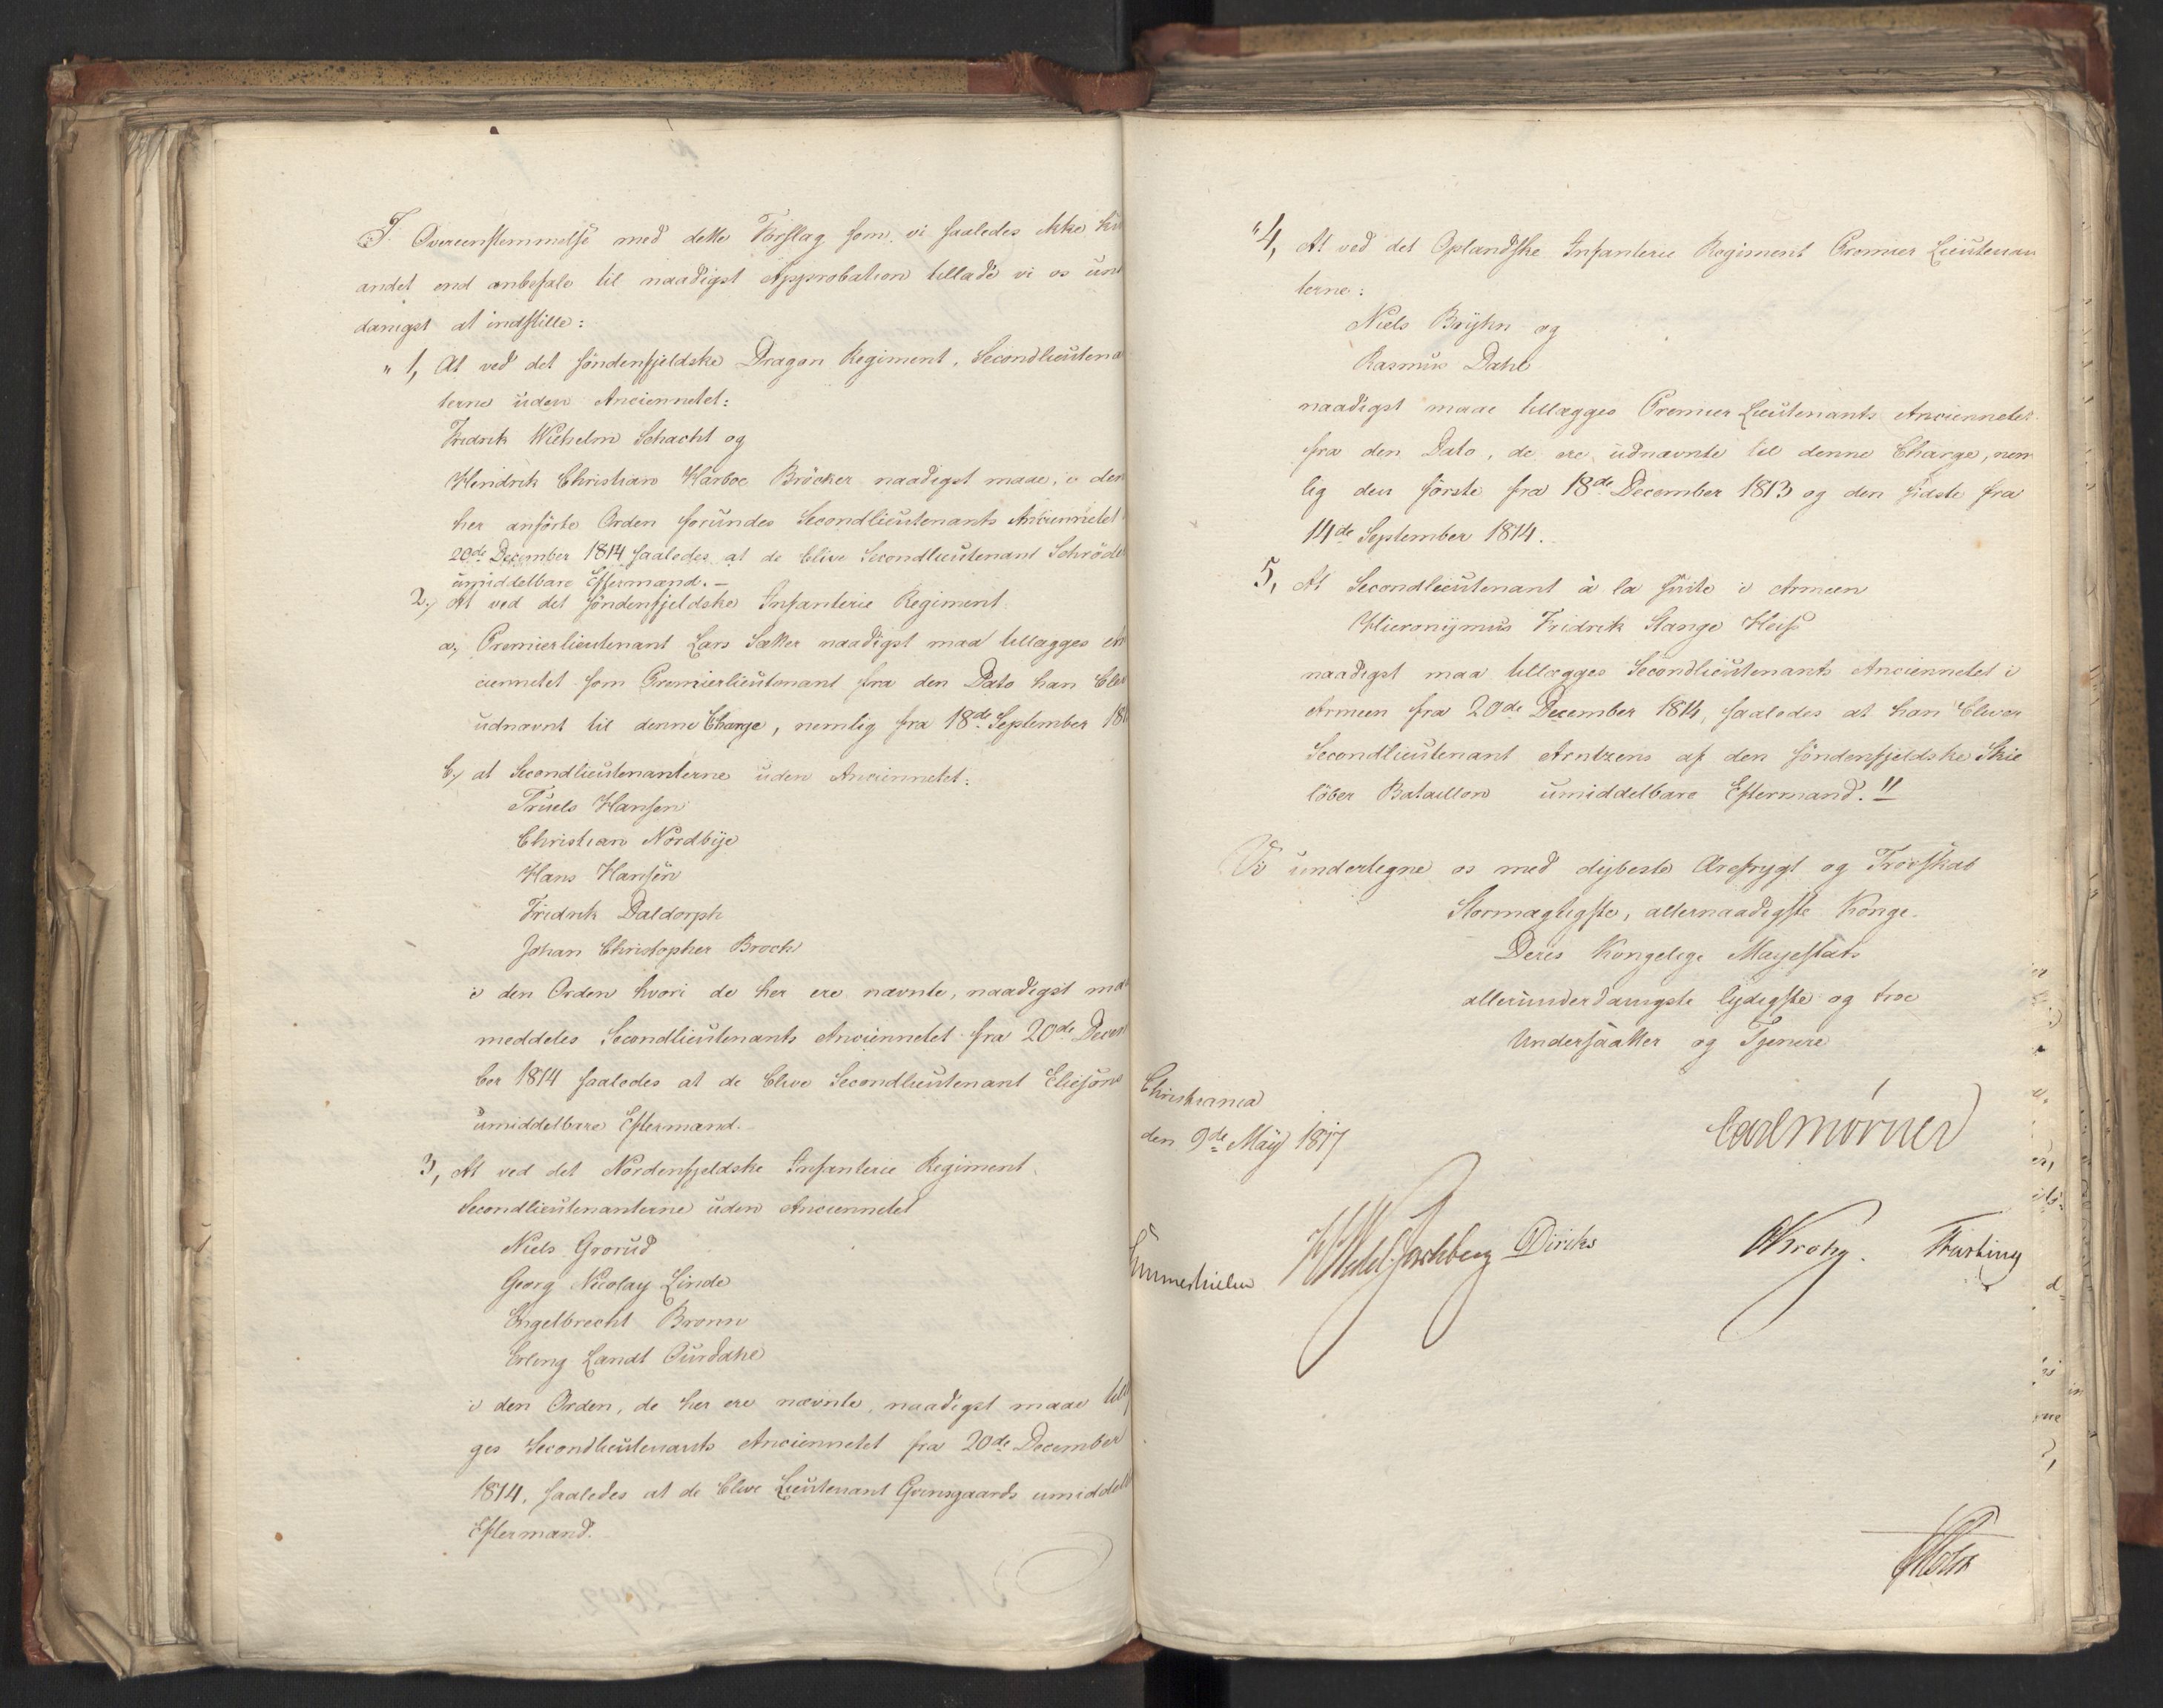 I Overeenstemmelse med dette Forslag som vi saaledes ikke kun
andet end anbefale til naadigst Approbation tillade vi os und
danigst at indstille:
" 1, At ved det söndenfjeldske Dragon Regiment, Secondlieutena
terne uden Anciennetet:
Fredrik Wilhelm Schacht og
Hendrik Christian Harboe Bröcker naadigst maae, i den
her anförte Orden forundes Secondlieutenants Anciennetet
20de December 1814 saaledes at de blive Secondlieutenant Schröde
umiddelbare Eftermænd. –
2, At ved det söndenfjeldske Infanterie Regiment
a, Premierlieutenant Lars Sætter naadigst maa tillægges An
ciennetet som Premierlieutenant fra den Dato han blev
udnævnt til denne Charge, nemlig fra 18de September 18
b, at Secondlieutenanterne uden Anciennetet:
Truels Hansen
Christian Nordbye
Hans Hansen
Fredrik Daldorph
Johan Christopher Broch
i den Orden hvori de her ere nævnte, naadigst maa
meddeles Secondlieutenants Anciennetet fra 20de Decem
ber 1814 saaledes at de blive Secondlieutenant Eliesons
umiddelbare Eftermænd.
3, At ved det Nordenfjeldske Infanterie Regiment
Secondlieutenanterne uden Anciennetet
Niels Grorud
Georg Nicolay Linde
Engelbrecht Bronn
Erling Landt
i den Orden, de her ere nævnte, naadigst maae till
ges Secondlieutenants Anciennetet fra 20de December
1814, saaledes at de blive Lieutenant umiddelb
Eftermænd.
"4, At ved det Oplandske Infanterie Regiment Premier Lieutenan
terne:
Niels Brÿhn og
Rasmus Dahl
naadigst maae tillægges Premier Lieutenants Anciennetet
fra den Dato, de ere udnævnte til denne Charge, nem
lig den förste fra 18de December 1813 og den sidste fra
14de September 1814.
5, At Secondlieutenant à la suite i Armeen
Hieronÿmus Fridrik Stange Heiss
naadigst maa tillægges Secondlieutenants Anciennetet i
Armeen fra 20de December 1814, saaledes at han bliver
Secondlieutenant Arntzens af den söndenfjeldske Skie
löber Bataillon umiddelbare Eftermand."
Vi undertegne os med dÿbeste Ærefrygt og Troeskab
Stormægtigste, allernaadigste Konge.
Deres Kongelige Mayestæts
allerunderdanigste lydigste og troe
Undersaatter og Tjenere
Christiania
den 9de Maÿ 1817
Carl Mörner
Sommerhielm Wedel Jarlsberg Diriks Krohg. Frasting